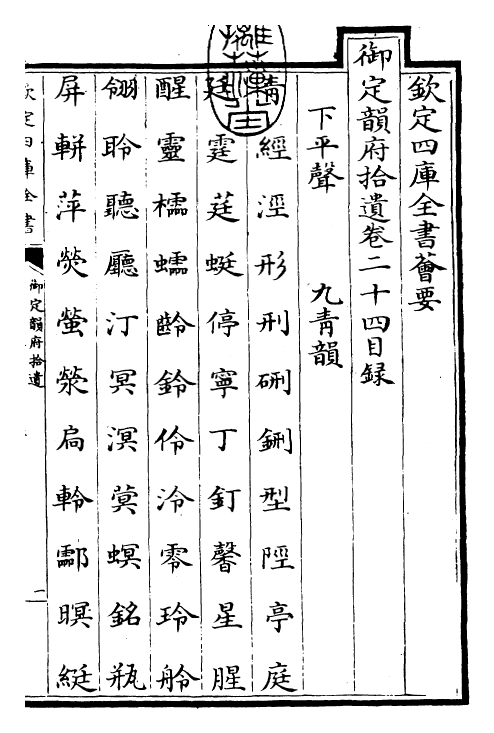 欽定四庫全書薈要
御定韻府拾遺卷二十四目録
下平聲　九青韻
青經涇形刑硎鉶型陘亭庭
廷霆莛蜓停寧丁釘馨星腥
醒靈櫺齡鈴伶泠零玲舲
翎聆聽廳汀冥溟蓂螟銘瓶
屏軿萍熒螢滎扃軨酃暝綎
欽定四庫全書
御定韻府拾遺
一